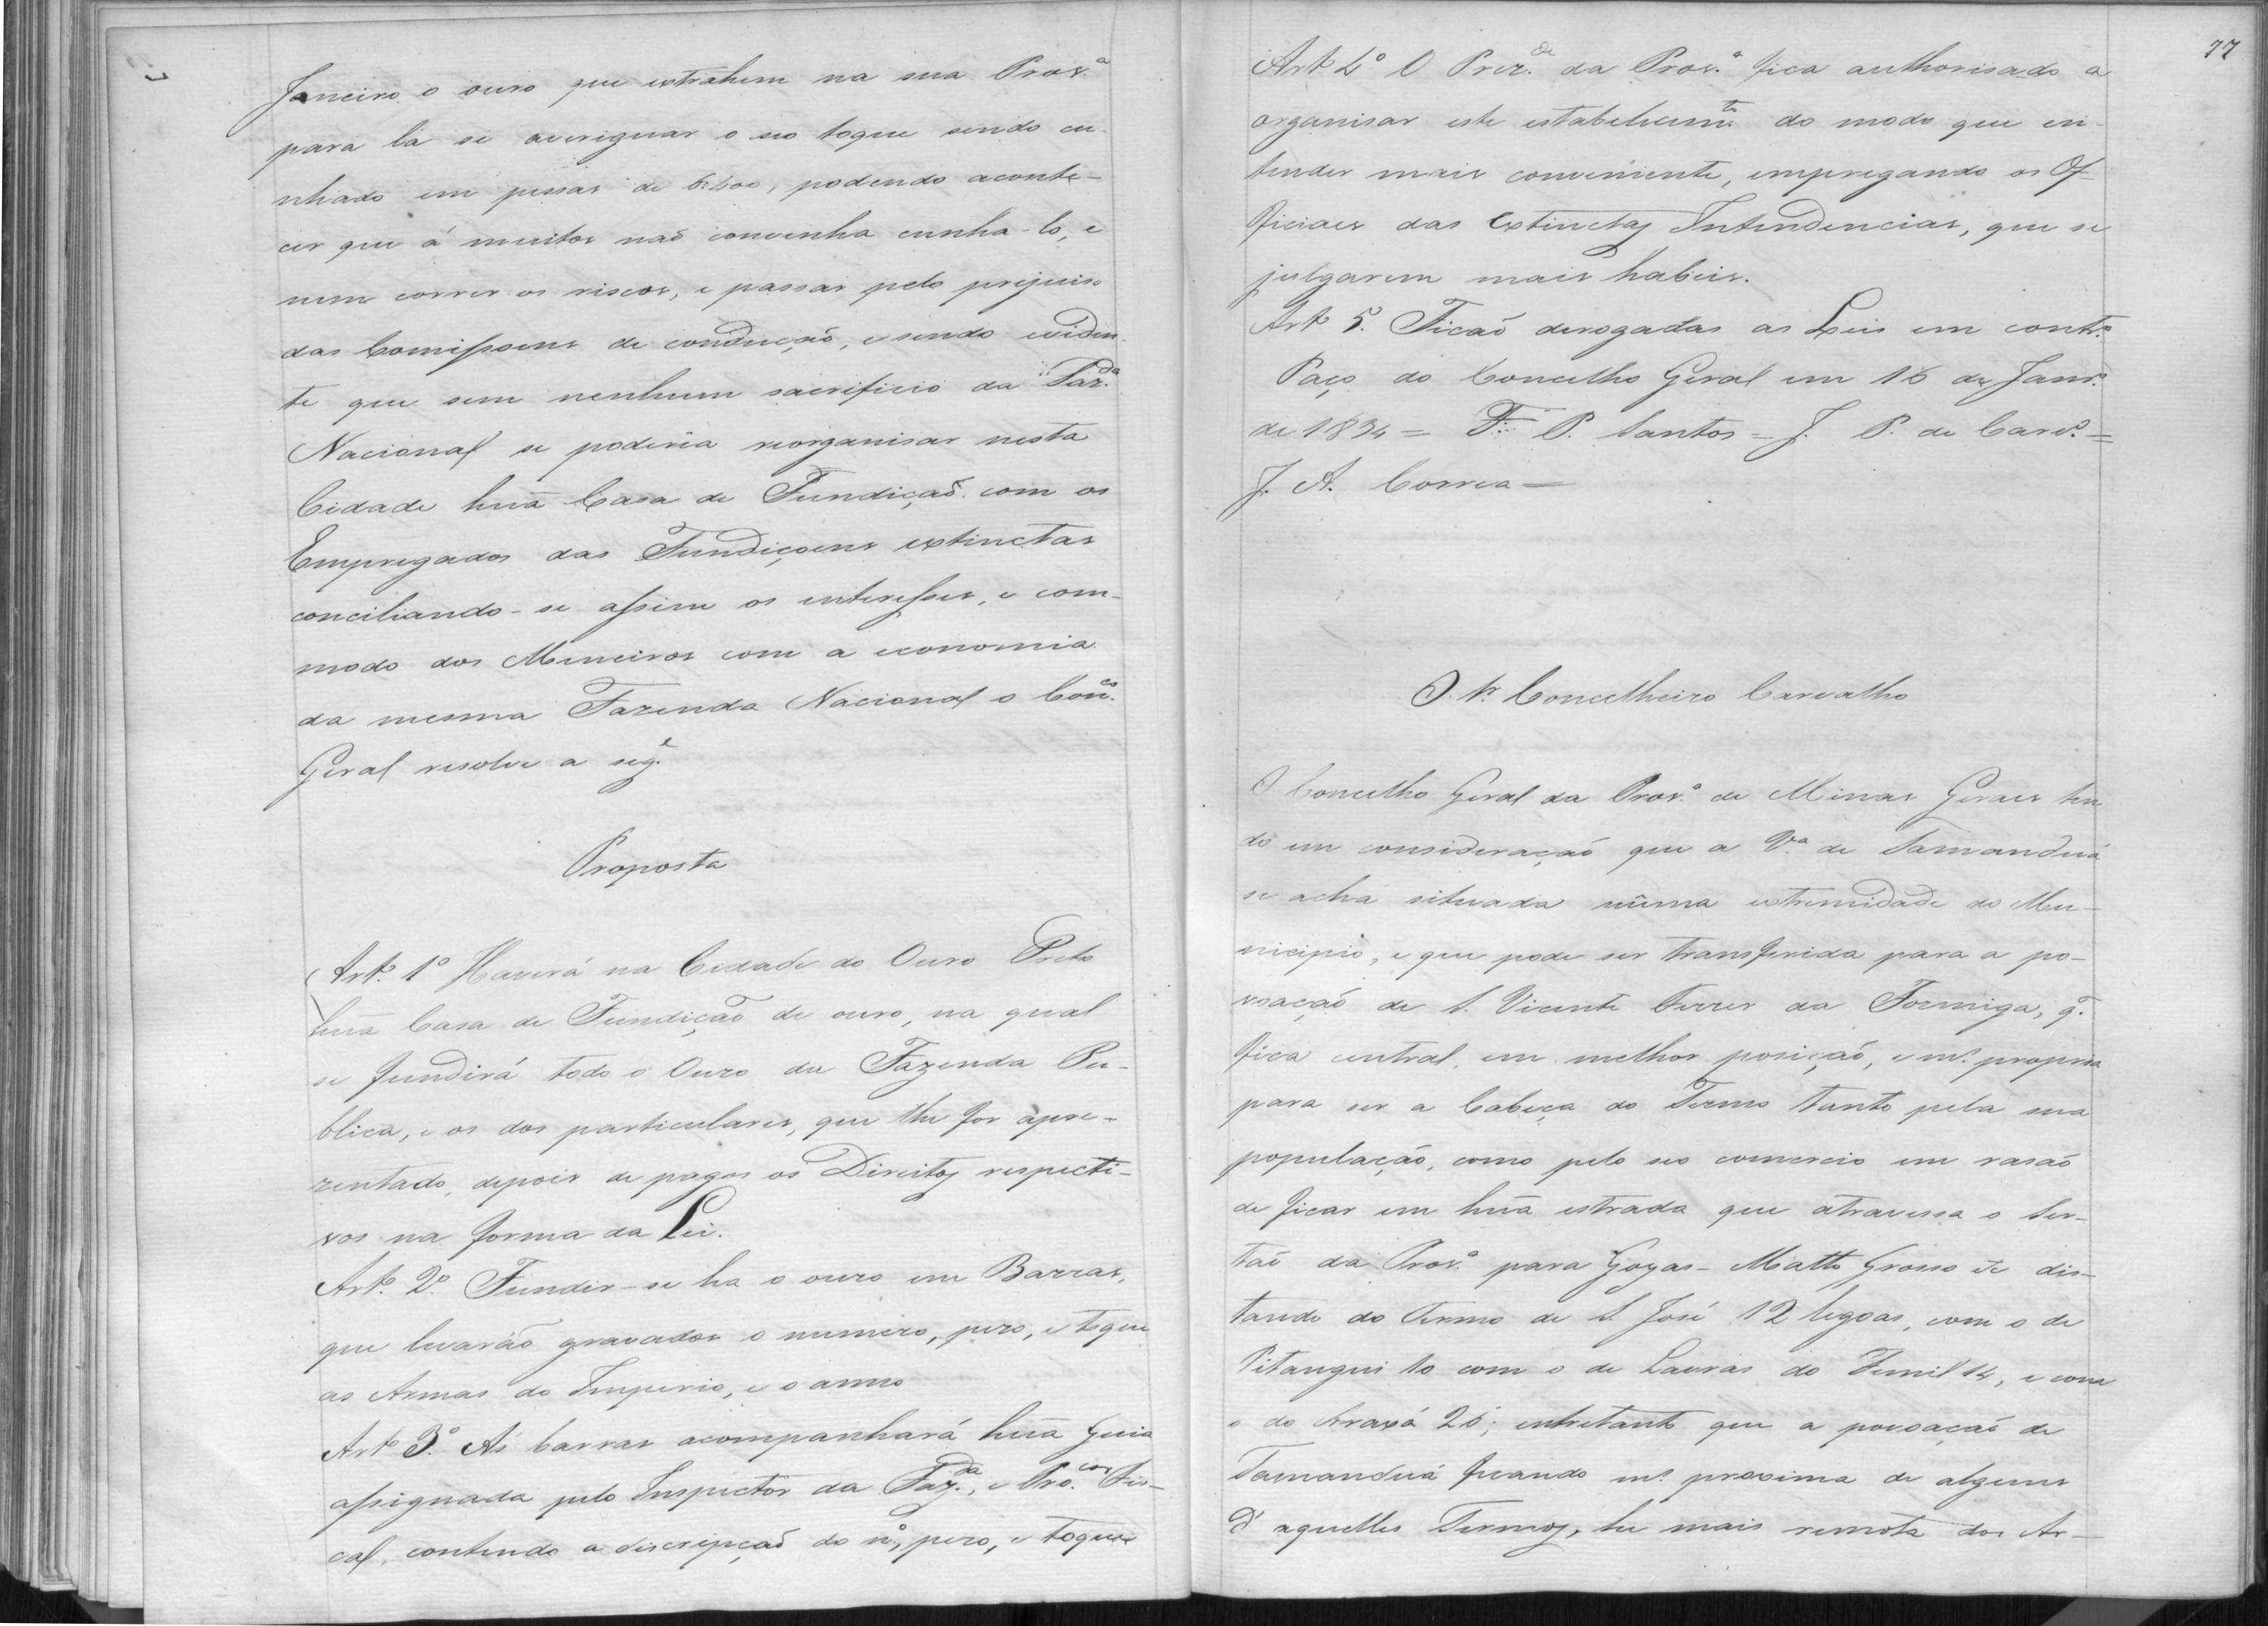 Janeiro o ouro que extrahem na sua Prov.ª
para lá se averiguar o seo toque sendo cu-
nhado em pessas de 6:400, podendo aconte-
cer que á muitos naõ convenha cunha-lo, e
nem correr os riscos, e passar pelo prejuiso
das Comissoens de conducçaõ, e sendo eviden-
te que sem nenhum sacrificio da Faz.da
Nacional se poderia reorganisar nesta
Cidade huã Casa de Fundiçaõ com os
Empregados das Fundiçoens extinctas
conciliando-se assim os interesses, e com-
modo dos Mineiros com a economia
da mesma Fazenda Nacional o Con.co
Geral resolve a seg.e
Proposta
Art.º 1º Haverá na Cidade do Ouro Preto
huã Casa de Fundiçaõ de ouro, na qual
se fundirá todo o Ouro da Fazenda Pu-
blica, e os dos particulares, que lhe for apre-
zentado, depois de pagos os Direitos respecti-
vos na forma da Lei.
Art.º 2º Fundir-se ha o ouro em Barras,
que levarão gravados o numero, pezo, e toque
as Armas do Imperio, e o anno
Artº 3º As barras acompanhará huã Guia
assignada pelo Inspector da Faz.da, e Pro.cor Fis-
cal, contendo a discripçaõ do nº, pezo, e toque
77
Artº 4º O Prez.de da Prov.ª fica authorisado a
organisar este estabelecim.to do modo que en-
tender mais conveniente, empregando os Of-
ficiaes das extinctas Intendencias, que se
julgarem mais habeis.
Artº 5º Ficaõ derogadas as Leis em contr.º
Paço do Concelho Geral em 16 de Janr.º
de 1834 = F. P. Santos = J. P. de Carv.º =
J. A. Correa =
O Sr. Concelheiro Carvalho
O Concelho Geral da Prov.ª de Minas Geraes ten
do em consideraçaõ que a V.ª de Tamanduá
se acha situada nũma extremidade do Mu-
nicipio, e que pode ser transferida para a po-
voaçaõ de S. Vicente Ferrer da Formiga, q.
fica central, em melhor posiçaõ, e m.s propria
para ser a Cabeça do Termo tanto pela sua
população, como pelo seo comercio em rasaõ
de ficar em huã estrada que atravessa o Ser-
taõ da Prov.ª para Goyas - Matto Grosso &c dis-
tando do Termo de S. José 12 legoas, com o de
Pitangui 10 com o de Lavras do Funil 14, e com
o do Araxá 26; entretanto que a povoaçaõ de
Tamanduá ficando m.s proxima de alguns
d'aquelles Termos, he mais remota dos Ar-